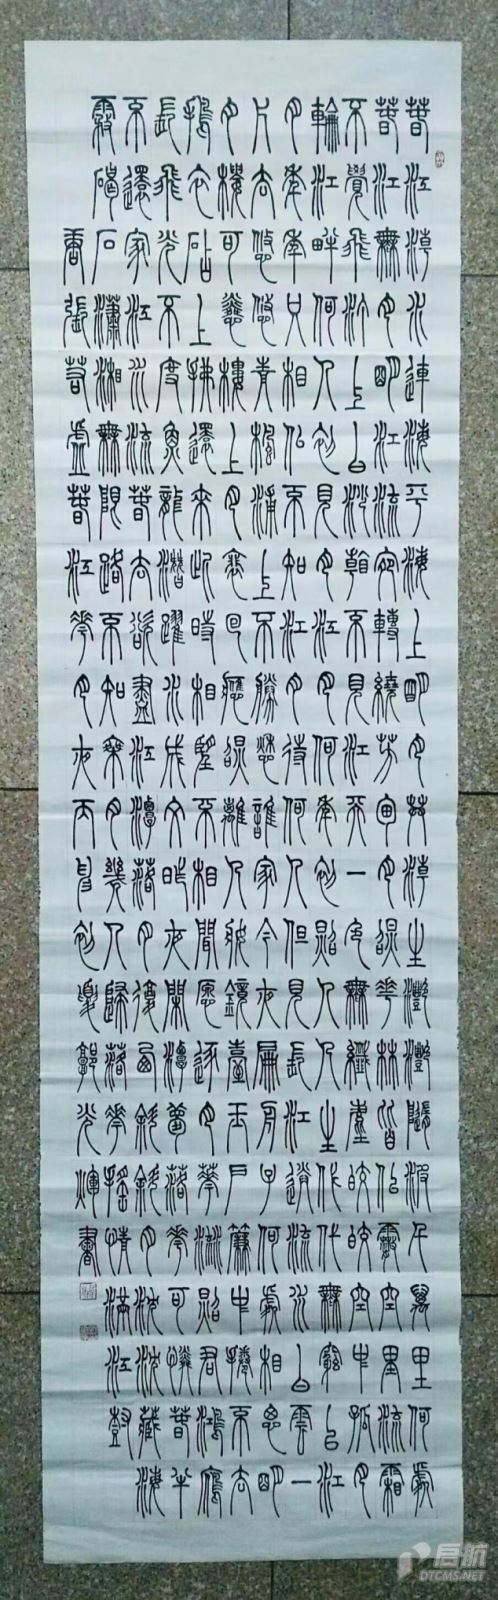 春江潮水連海平海上明月共潮生灩灩隨波千萬里何處
春江無月明江流宛轉繞芳甸月照花林皆似霰空里流霜
不覺飛汀上白沙看不見江天一色無纖塵皎皎空中孤月
輪江畔何人初見月江月何年初照人人生代代無窮已江
月年年只相似不知江月待何人但見長江送流水白雲一
片去悠悠青楓浦上不勝愁誰家今夜扁舟子何處相思明
月樓可憐樓上月裵回應照離人妝鏡臺玉戶簾中捲不去
搗衣砧上拂還來此時相望不相聞愿逐月華流照君鴻雁
長飛光不度魚龍潛躍水成文昨夜閑潭夢落花可憐春半
不還家江水流春去欲盡江潭落月復西斜斜月沈沈藏海
霧碣石瀟湘無限路不知乘月幾人歸落花搖情滿江樹
唐張若虛春江花月夜丙申初夏郭光輝書
启航
DTCMS.NET